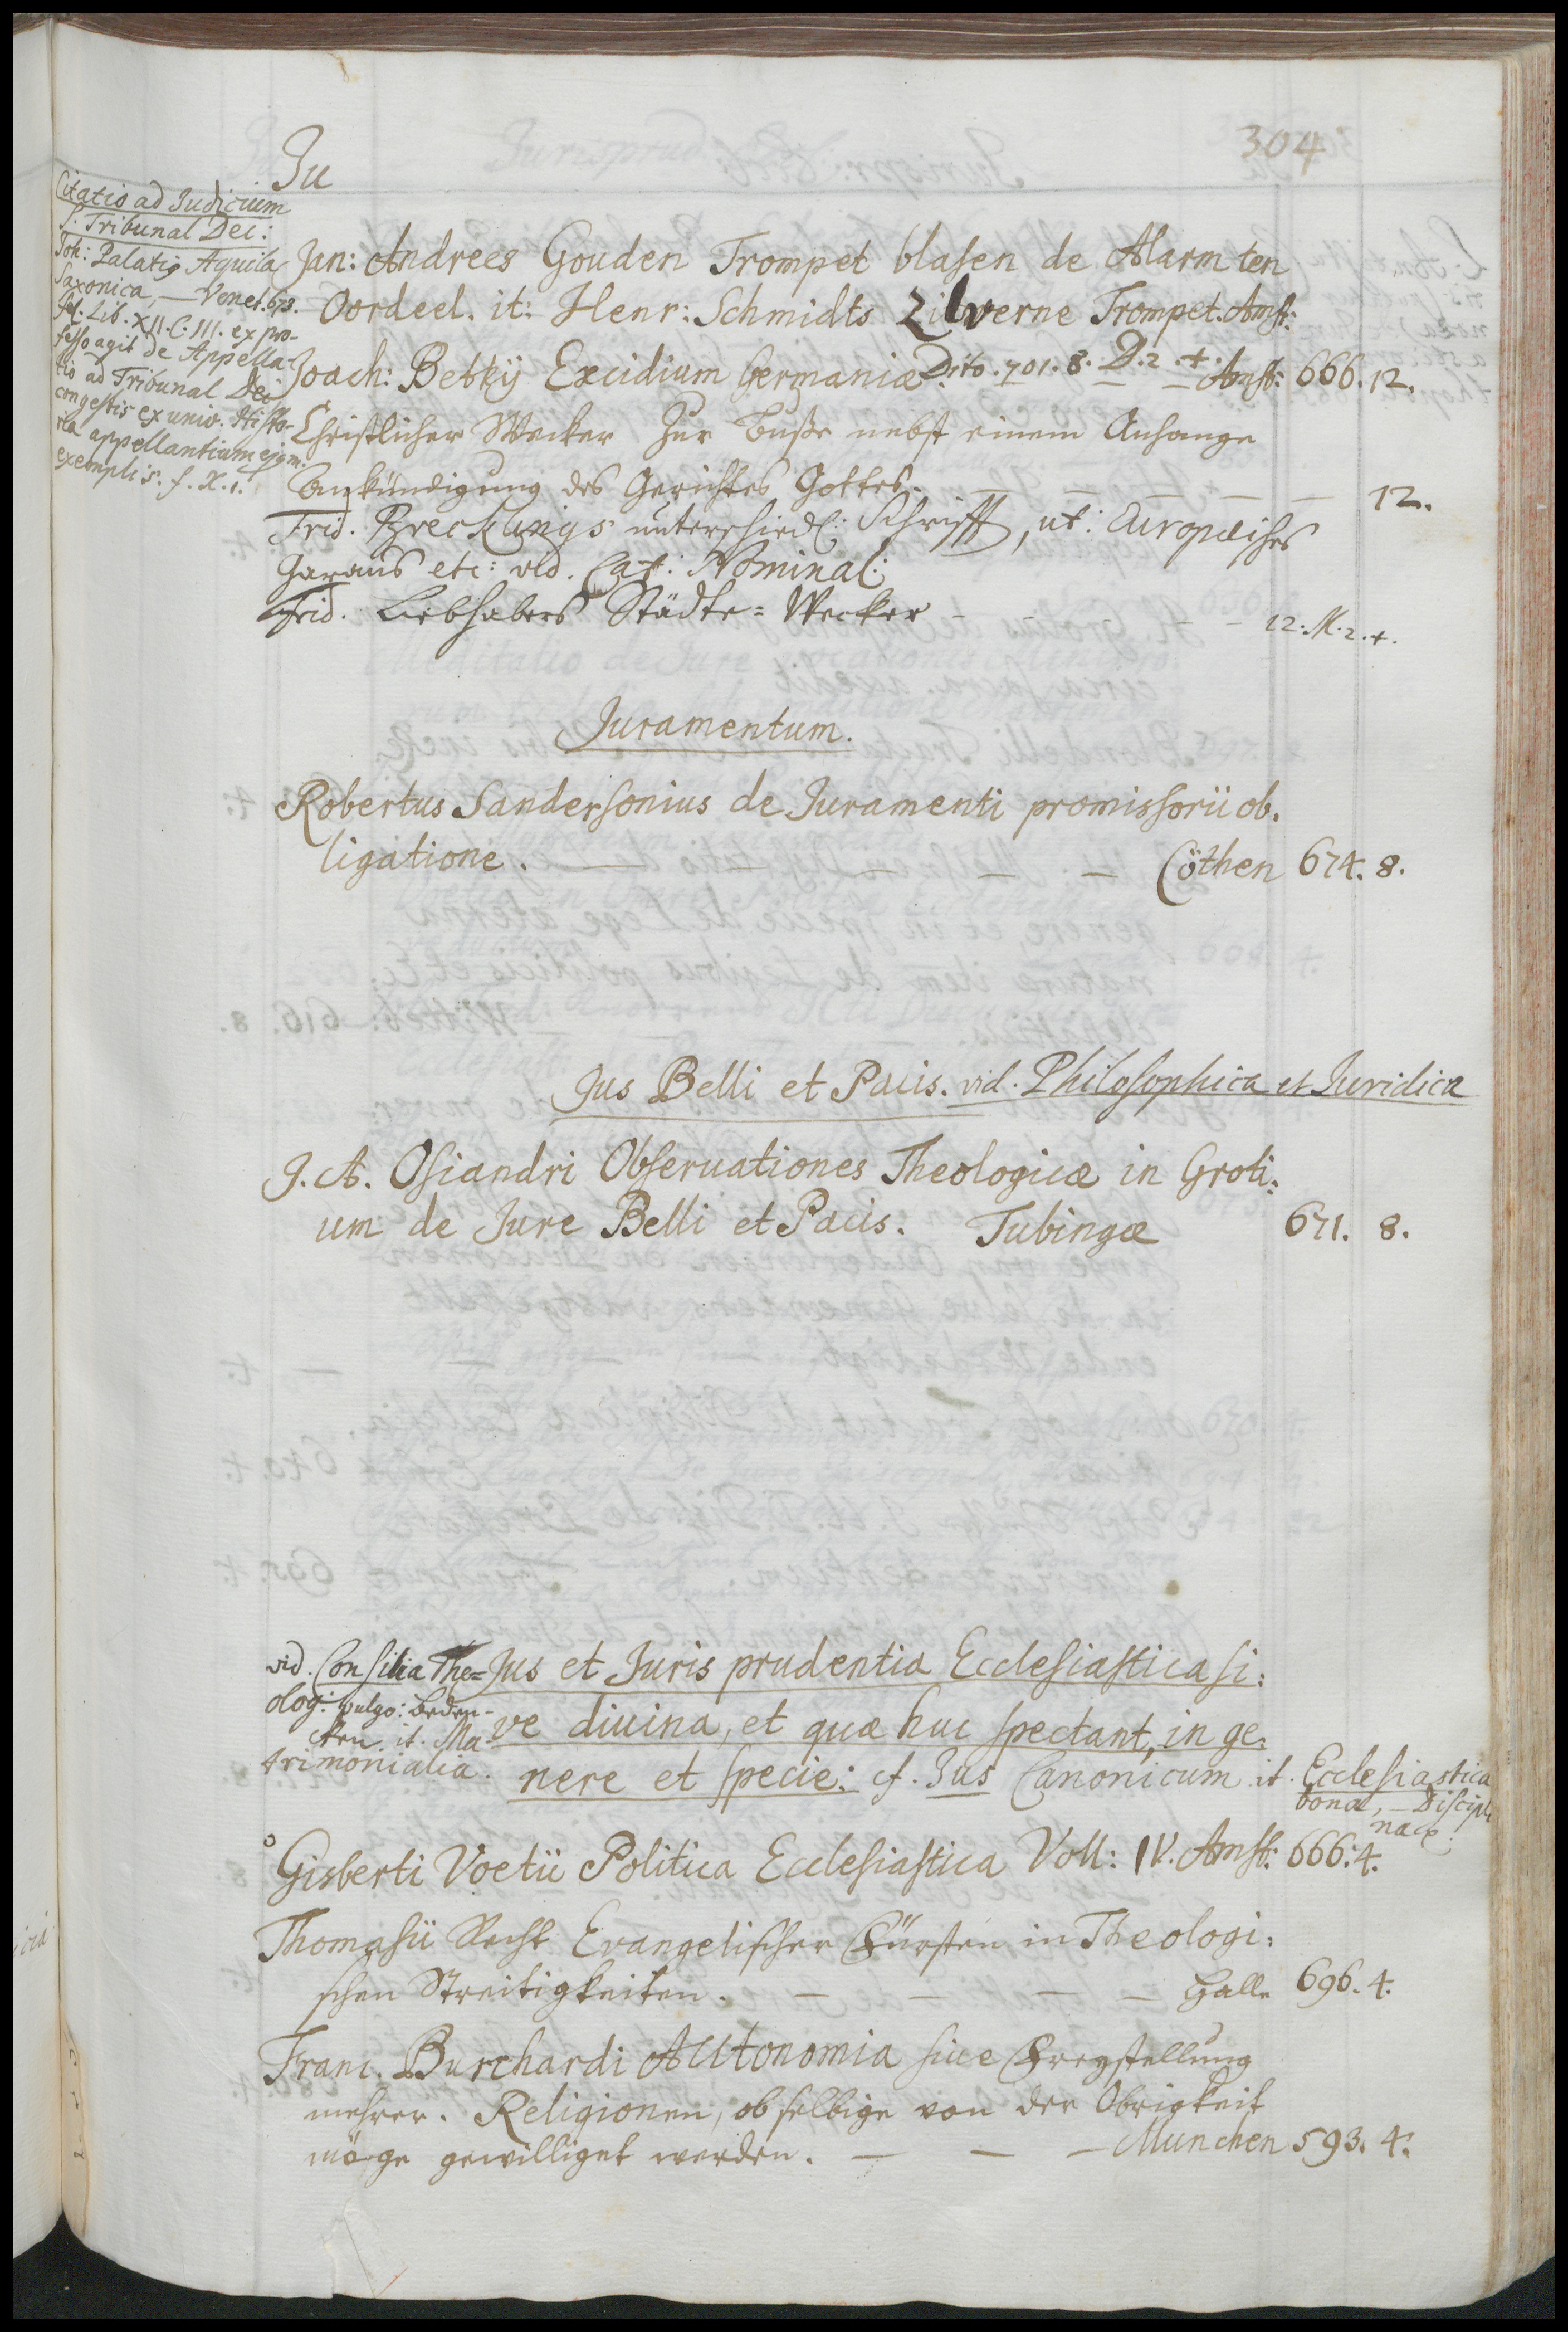 304
Ju
Citatio ad Judicium
S. Tribunal Dei:
Joh: Palatij Aquila
Saxonica, — Venet. 673.
Lib. XII. C. III. ex pro-
fesso agit de Appella-
tio ad Tribunal Dei
congestis ex univ. Histo-
ria appellantium ejsm.
exemplis. f. X. 1.
Jan: Andrees Gouden Trompet blasen de Alarm ten
Oordeel. it: Henr: Schmidts Zilverne Trompet. Amst:
Joach: Betkÿ Excidium Germaniæ Dito. 701. 8. D. 2. +. — Amst: 666. 12.
Christlicher Wecker zur Buße nebst einem Anhange
Ankündigung des Gerichtes Gottes. — — — — 12.
Frid. Brecklings unterschiedl: Schrifft, ut: Europæisches
Garaus etc: vid. Cat: Nominal:
Frid. Liebhabers Städte=Wecker - - - - 12. M. 2. +.
Juramentum.
Robertus Sandersonius de Juramenti promissorii ob.
ligatione. — — — — — Cöthen 674. 8.
Jus Belli et Pacis. vid. Philosophica et Juridica
J. A. Osiandri Obseruationes Theologicæ in Groti:
um de Jure Belli et Pacis. Tubingæ 671. 8.
vid. Consilia The=
olog: vulgo: Beden-
cken it. Ma-
trimonialia.
Jus et Juris prudentia Ecclesiastica si:
ve diuina, et quæ huc spectant, in ge:
nere et specie: cf. Jus Canonicum it. Ecclesiastica
bona, — Discipli
nace.
Gisberti Voetii Politica Ecclesiastica Voll: IV. Amst: 666. 4.
Thomasii Recht Evangelischer Fürsten in Theologi:
schen Streitigkeiten. — — — — Halle 696. 4.
Franc. Burchardi AUtonomia siue Freystellung
mehrer. Religionen, ob selbige von der Obrigkeit
möge gewilliget werden. — — — Munchen 593. 4.